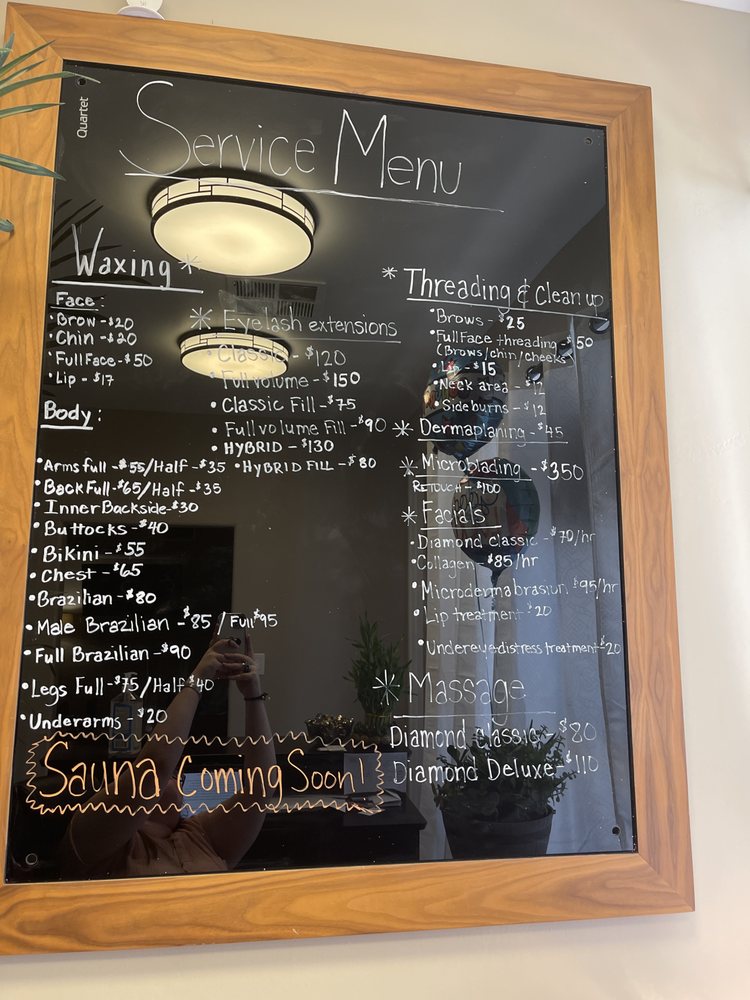 Quartet
Service Menu
Waxing *
Face:
• Brow - $20
• Chin - $20
• Full Face - $50
• Lip - $17
Body:
• Arms full - $55/Half - $35
• Back Full - $65/Half - $35
• Inner Backside - $30
• Buttocks - $40
• Bikini - $55
• Chest - $65
• Brazilian - $80
• Male Brazilian - $85 / Full $95
• Full Brazilian - $90
• Legs Full - $75/Half $40
• Underarms - $20
* Eyelash extensions
• Classic - $120
• Full volume - $150
• Classic Fill - $75
• Full volume Fill - $90
• HYBRID - $130
• HYBRID FILL - $80
* Threading & Clean up
• Brows - $25
• Full Face threading - $50
(Brows/chin/cheeks
• Lip - $15
• Neck area - $12
• Sideburns - $12
* Dermaplaning - $45
* Microblading - $350
RETOUCH - $100
* Facials
• Diamond classic - $70/hr
• Collagen - $85/hr
• Microdermabrasion $95/hr
• Lip treatment - $20
• Undereye distress treatment $20
* Massage
Diamond classic - $80
Diamond Deluxe - $110
Sauna Coming Soon!